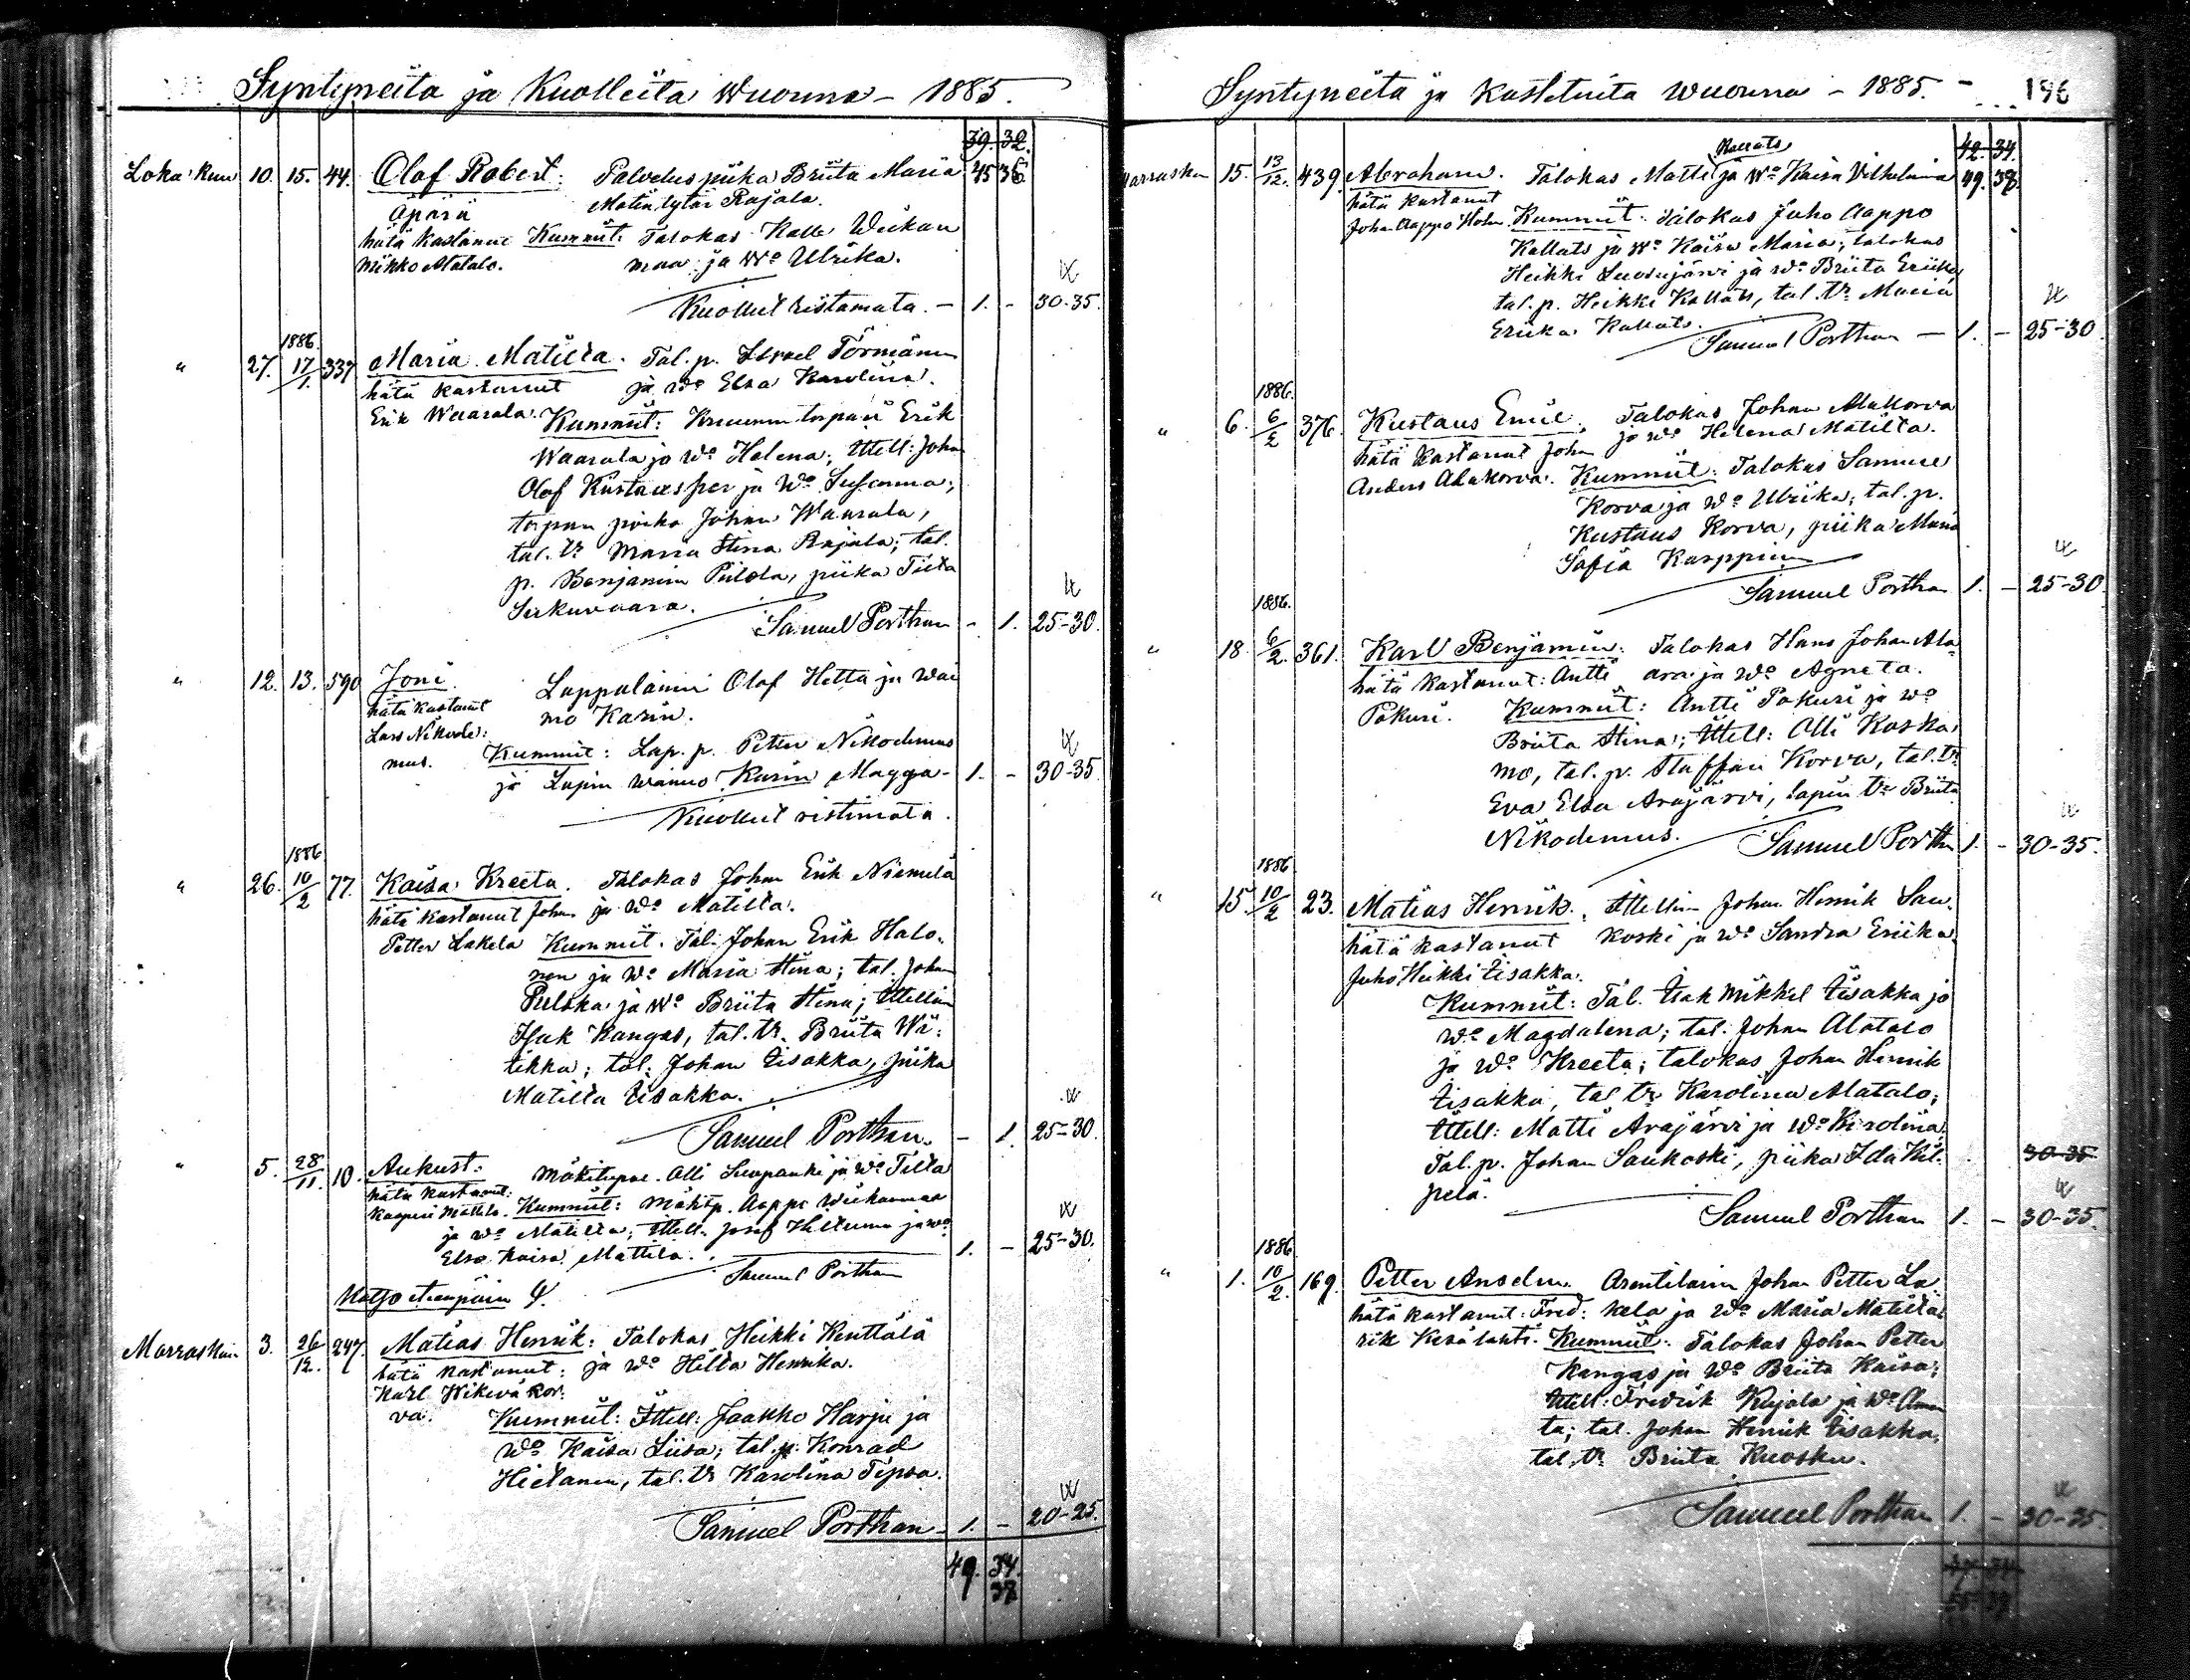 Syntyneitä ja Kuolleita Wuonna - 1885.
39. 32.
Loka Kuu 10. 15. 44. Olaf Robert: Palvelus piika Briita Maria 45 36
Äpärä Matin tytär Rajala.
hätä kastanut Kummit: Talokas Kalle Wiikan
Mikko Alatalo. maa ja Wo Ulrika.
Kuollut ristamata. - 1. - 30-35.
1886.
" 27. 17/1. 337 Maria Matilta. Tal. p. Israel Törmänen
hätä kastanut ja wo Elsa Karolina.
Erik Waarala. Kummit: Kruunun torpari Erik
Waarala ja Wo Helena; Ittell: Johan
Olaf Kustaa ja Wo Susanna;
torpan poika Johan Waarala,
tal. tr Maria Stina Rajala; tal.
p. Benjamin Piilola, piika Tilta
Sirkuvaara.
Samuel Porthan - 1. 25-30.
" 12. 13. 590 Joni Lappalainen Olaf Hetta ja wai
hätä kastanut mo Karin.
Lars Nikode:
mus. Kummit: Lap. p. Petter Nikodemus
ja Lapin waimo Karin Magga - 1. - 30-35.
Kuollut ristimata.
1886
" 26. 10/2 77. Kaisa Kreeta. Talokas Johan Erik Niemelä
hätä kastanut Johan ja wo Matilta.
Petter Lakela Kummit. Tal. Johan Erik Halo-
nen ja wo Maria Stina; tal. Johan
Pulska ja wo Briita Stina; Ittellin
Isak Kangas, tal. tr. Briita Wii-
tikka; tal. Johan Iisakka, piika
Matilta Iisakka.
Samuel Porthan. - 1. 25-30.
" 5. 28/11. 10. Aukust: Mäkitupal. Olli Suopanki ja wo Tilta
hätä kastanut:
Kasperi Mattila. Kummit: Mäkitp. Aappo Wiikanmaa
ja wo Matilta; Ittell. Josef Hietanen ja wo
Elsa Kaisa Mattila. 1. - 25-30.
Samuel Porthan
Katso etempäin
Marraskuu 3. 26/12. 247. Matias Henrik: Talokas Heikki Kenttälä
hätä kastanut: ja wo Hilta Henrika.
Karl Wikevä Kor:
va. Kummit: Ittell: Jaakko Harju ja
wo Kaisa Liisa; tal. p. Konrad
Hietanen, tal. tr Karolina Tepsa.
Samuel Porthan - 1. - 20-25.
49. 34.
38
Syntyneitä ja Kastetuita wuonna - 1885. - 196
Kallats 42. 34.
Marraskuu 15. 13/12. 439. Abraham. Talokas Matti ja wo Kaisa Vilhelmina 49. 38.
hätä kastanut
Johan Aappo Holm. Kummit: Talokas Juho Aappo
Kallats ja wo Kaisa Maria; talokas
Heikki Luosujärvi ja wo Briita Eriika,
tal. p. Heikki Kallats, tal. tr Maria
Eriika Kallats.
Samuel Porthan - 1. - 25-30
1886.
" 6. 6/2 376. Kustaus Emil. Talokas Johan Alakorva
hätä kastanut Johan ja wo Helena Matilta.
Anders Alakorva. Kummit: Talokas Samuel
Korva ja wo Ulrika; tal. p.
Kustaus Korva, piika Maria
Sofia Karppinen
Samuel Porthan 1. - 25-30
1886.
" 18. 6/2. 361. Karl Benjamin. Talokas Hans Johan Ala-
hätä kastanut: Antti ara ja wo Agneta.
Pokuri. Kummit: Antti Pokuri ja wo
Briita Stina; Ittell: Olli Koska-
mo, tal. p. Staffan Korva, tal. tr.
Eva Elsa Arajärvi, lapin tr Briita
Nikodemus.
Samuel Porthan 1. - 30-35.
1886
" 15. 10/2 23. Matias Henrik. Ittellin Johan Henrik Sau-
hätä kastanut koski ja wo Sandra Eriika.
Juho Heikki Iisakka.
Kummit: Tal. Isak Mikkel Iisakka ja
wo Magdalena; tal. Johan Alatalo
ja wo Kreeta; talokas Johan Henrik
Iisakka, tal tr Karolina Alatalo;
Ittell: Matti Arajärvi ja wo Karolina
Tal. p. Johan Saukoski, piika Ida Kil- 30-35
pelä.
Samuel Porthan 1. - 30-35.
1886
" 1. 10/2. 169. Petter Anselm. Arentilainen Johan Petter La-
hätä kastanut: Fred: kela ja wo Maria Matilta.
rik Kesälahti. Kummit: Talokas Johan Petter
Kangas ja wo Briita Kaisa;
Ittell: Fredrik Rajala ja wo Aman
ta; tal. Johan Henrik Iisakka,
tal. tr Briita Kuosku.
Samuel Porthan 1. - 30-35.
55 39